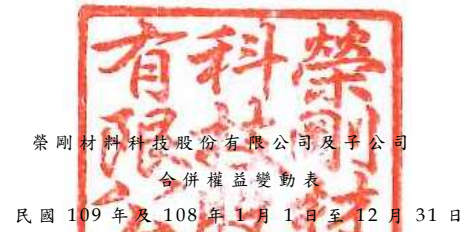 有科榮
限技剛
榮剛材料科技股份有限公司及子公司
合併權益變動表
民國 109 年及 108 年 1 月 1 日至 12 月 31 日